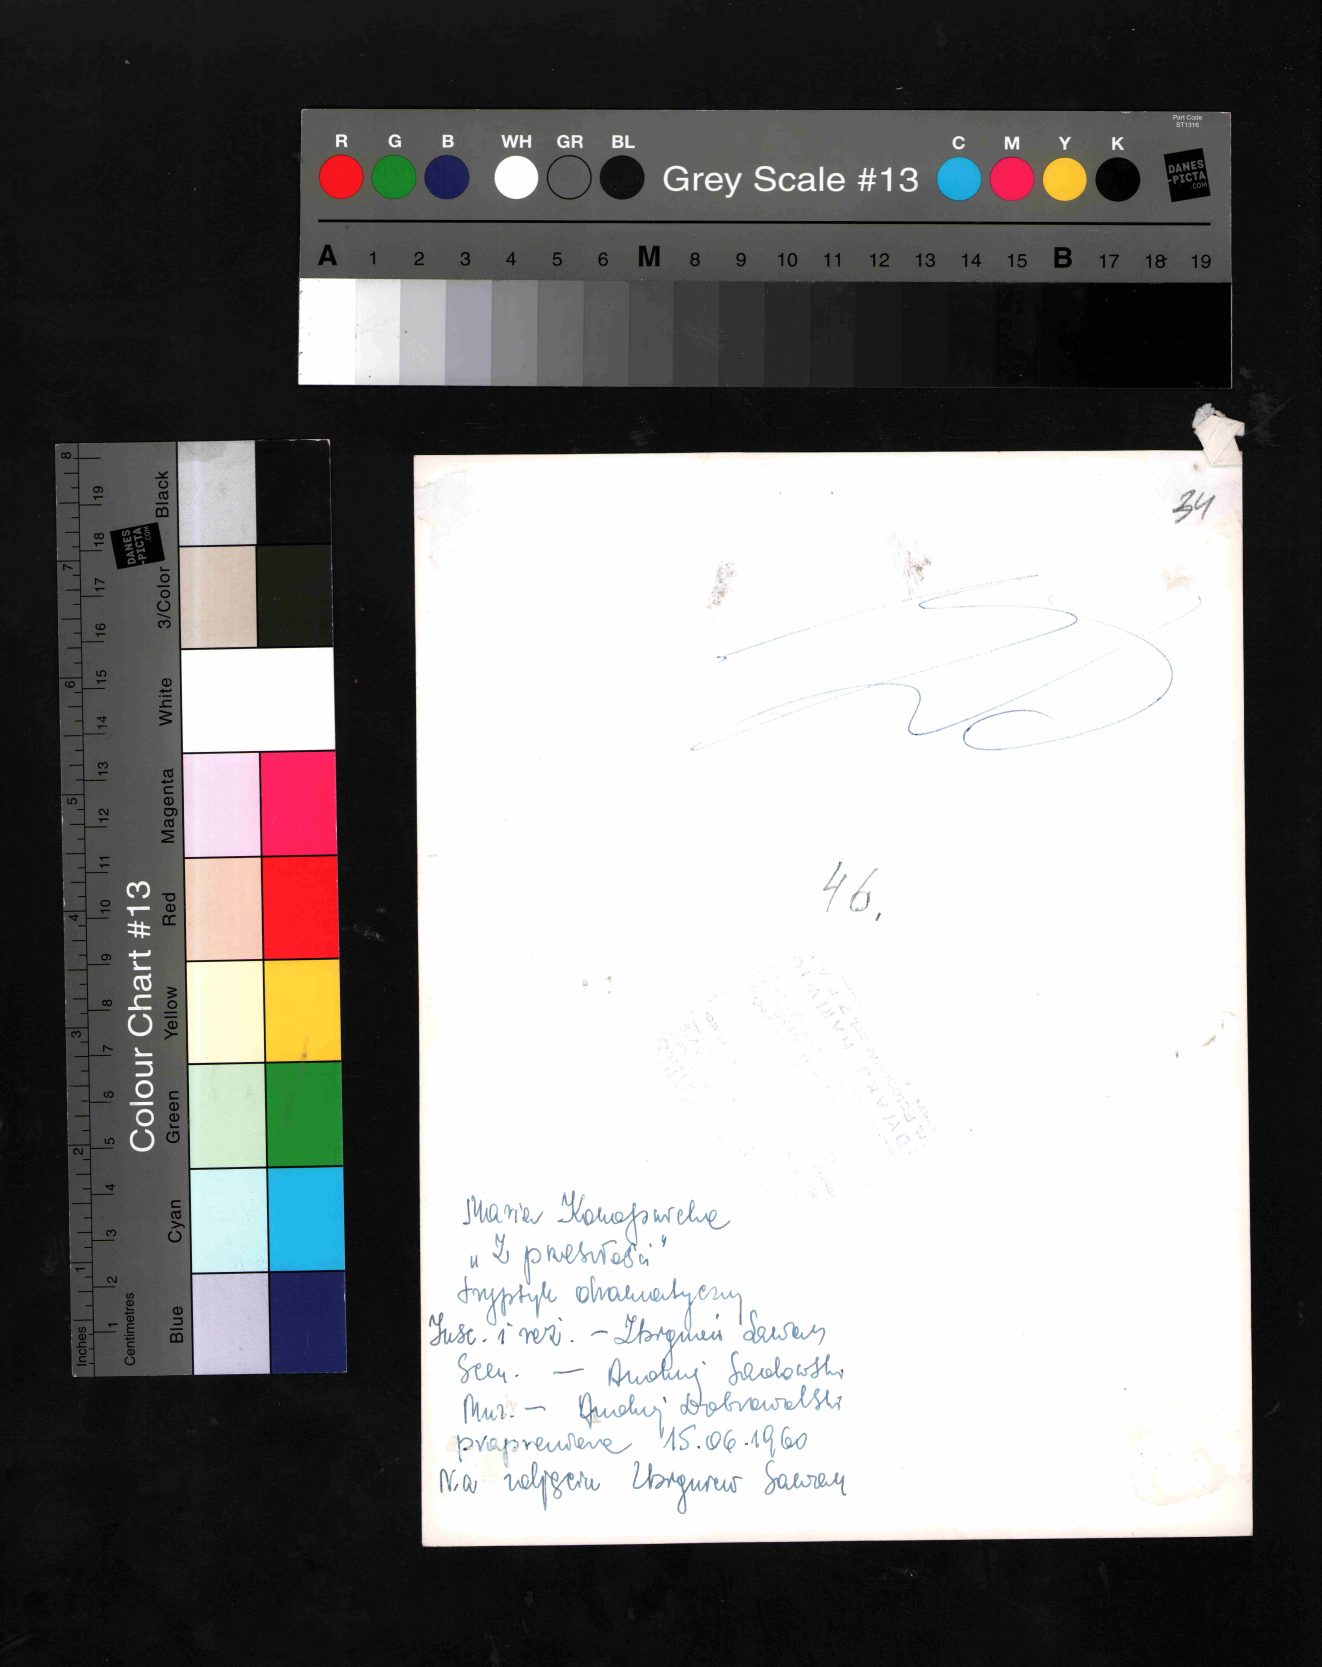 Part Code
ST1316
R G B WH GR BL Grey Scale #13 C M Y K
DANES
-PICTA
.COM
A 1 2 3 4 5 6 M 8 9 10 11 12 13 14 15 B 17 18 19
Colour Chart #13
DANES
-PICTA
.COM
Black
3/Color
White
Magenta
Red
Yellow
Green
Cyan
Blue
8 7 6 5 4 3 2 1 Inches
19 18 17 16 15 14 13 12 11 10 9 8 7 6 5 4 3 2 1 Centimetres
34
46.
Maria Konopnicka
„Z przeszłości"
tryptyk dramatyczny
Insc. i reż. – Zbigniew Sawan
Scen. — Andrzej Sadowski
Muz. – Andrzej Dobrowolski
prapremiera 15.06.1960
Na zdjęciu Zbigniew Sawan